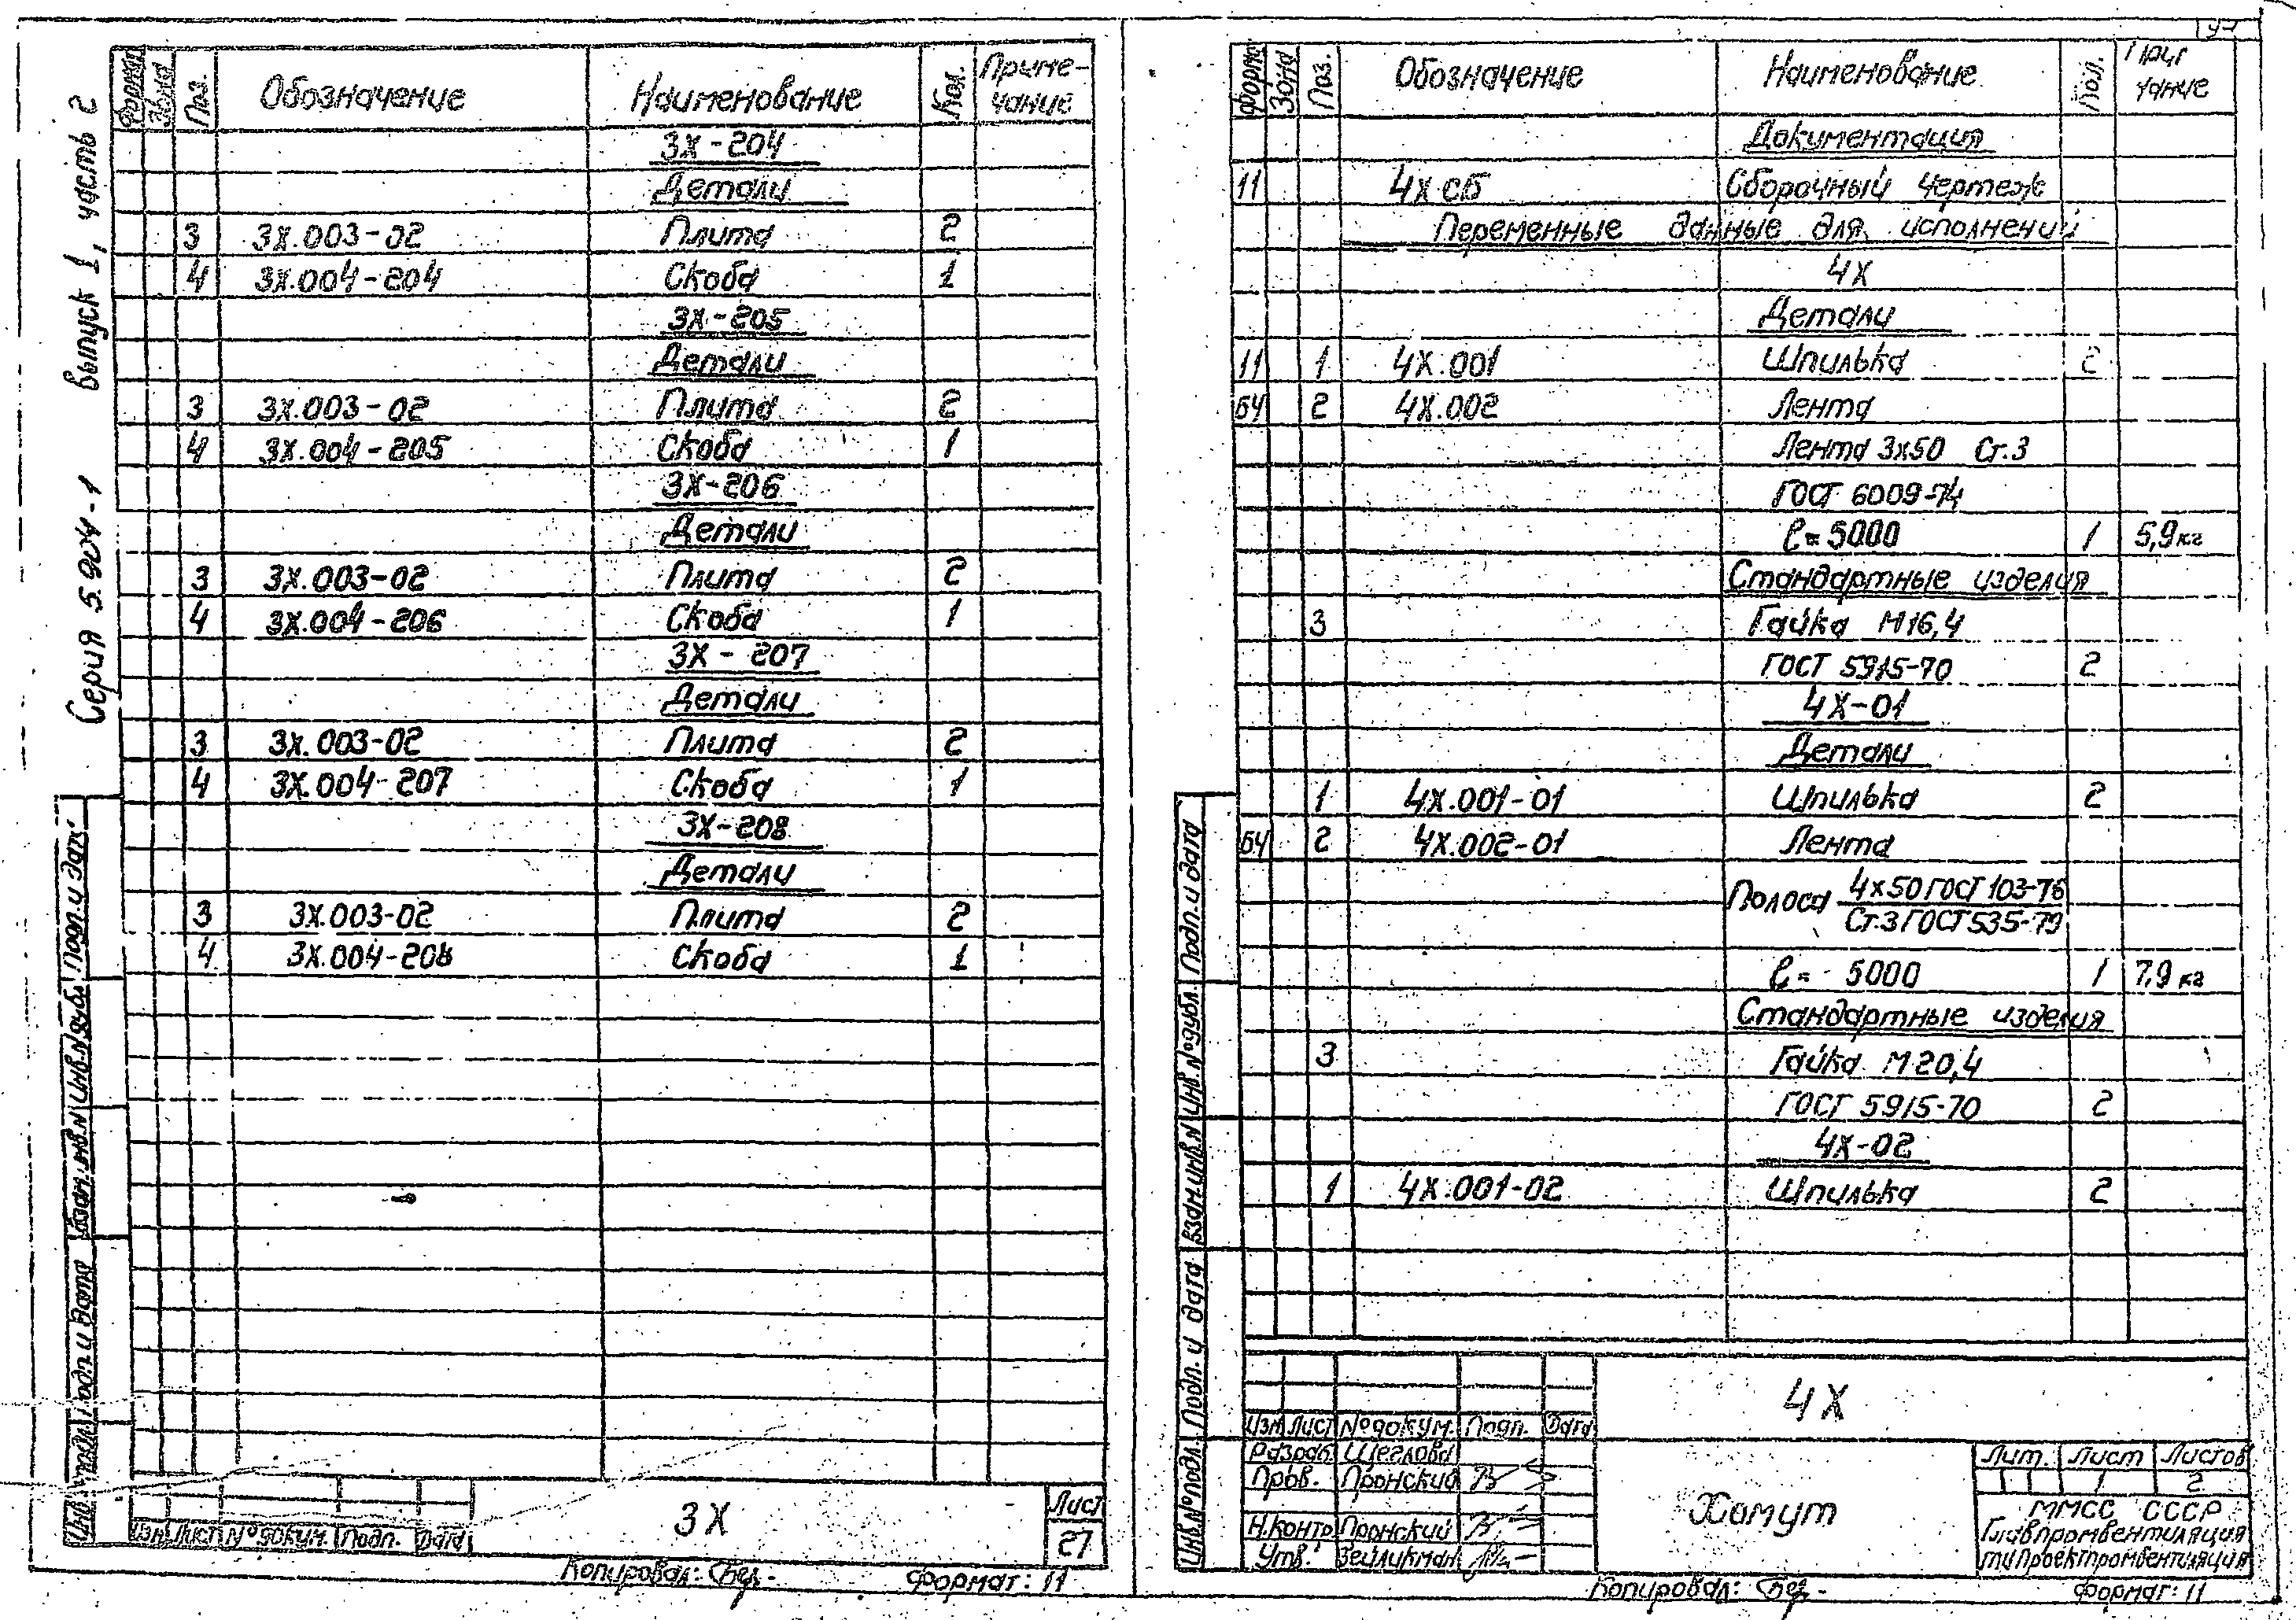 Серия 5.904-1 выпуск 1, часть 2
Формат Зона Поз. Обозначение Наименование Кол. Приме-
чание
3Х-204
Детали
3 3Х.003-02 Плита 2
4 3Х.004-204 Скоба 1
3Х-205
Детали
3 3Х.003-02 Плита 2
4 3Х.004-205 Скоба 1
3Х-206
Детали
3 3Х.003-02 Плита 2
4 3Х.004-206 Скоба 1
3Х-207
Детали
3 3Х.003-02 Плита 2
4 3Х.004-207 Скоба 1
3Х-208
Детали
3 3Х.003-02 Плита 2
4 3Х.004-208 Скоба 1
Подп. и дата
Инв.№ дубл.
Взам. инв.№
Подп. и дата
Инв. № подл.
Изм Лист № докум. Подп. Дата
3Х
Лист
27
Копировал:
Формат: 11
Форма Зона Поз. Обозначение Наименование Кол.
чание
Документация
11 4Х СБ Сборочный чертеж
Переменные данные для исполнений
4Х
Детали
11 1 4Х.001 Шпилька 2
БЧ 2 4Х.002 Лента
Лента 3х50 Ст.3
ГОСТ 6009-74
ℓ=5000 1 5,9кг
Стандартные изделия
3 Гайка М16,4
ГОСТ 5915-70 2
4Х-01
Детали
1 4Х.001-01 Шпилька 2
БЧ 2 4Х.002-01 Лента
Полоса 4х50 ГОСТ 103-76
Ст.3 ГОСТ 535-79
ℓ= 5000 1 7,9кг
Стандартные изделия
3 Гайка М20,4
ГОСТ 5915-70 2
4Х-02
1 4Х.001-02 Шпилька 2
Подп. и дата
Инв.№ дубл.
Взам инв.№
Подп. и дата
Инв.№ подл.
4Х
Изм Лист № докум. Подп. Дата
Разраб. Щеглова
Пров. Пронский
Н.контр Пронский
Утв. Зейликман
Хомут
Лит. Лист Листов
1 2
ММСС СССР
Главпромвентиляция
ГПИ Проектпромвентиляция
Копировал:
Формат: 11